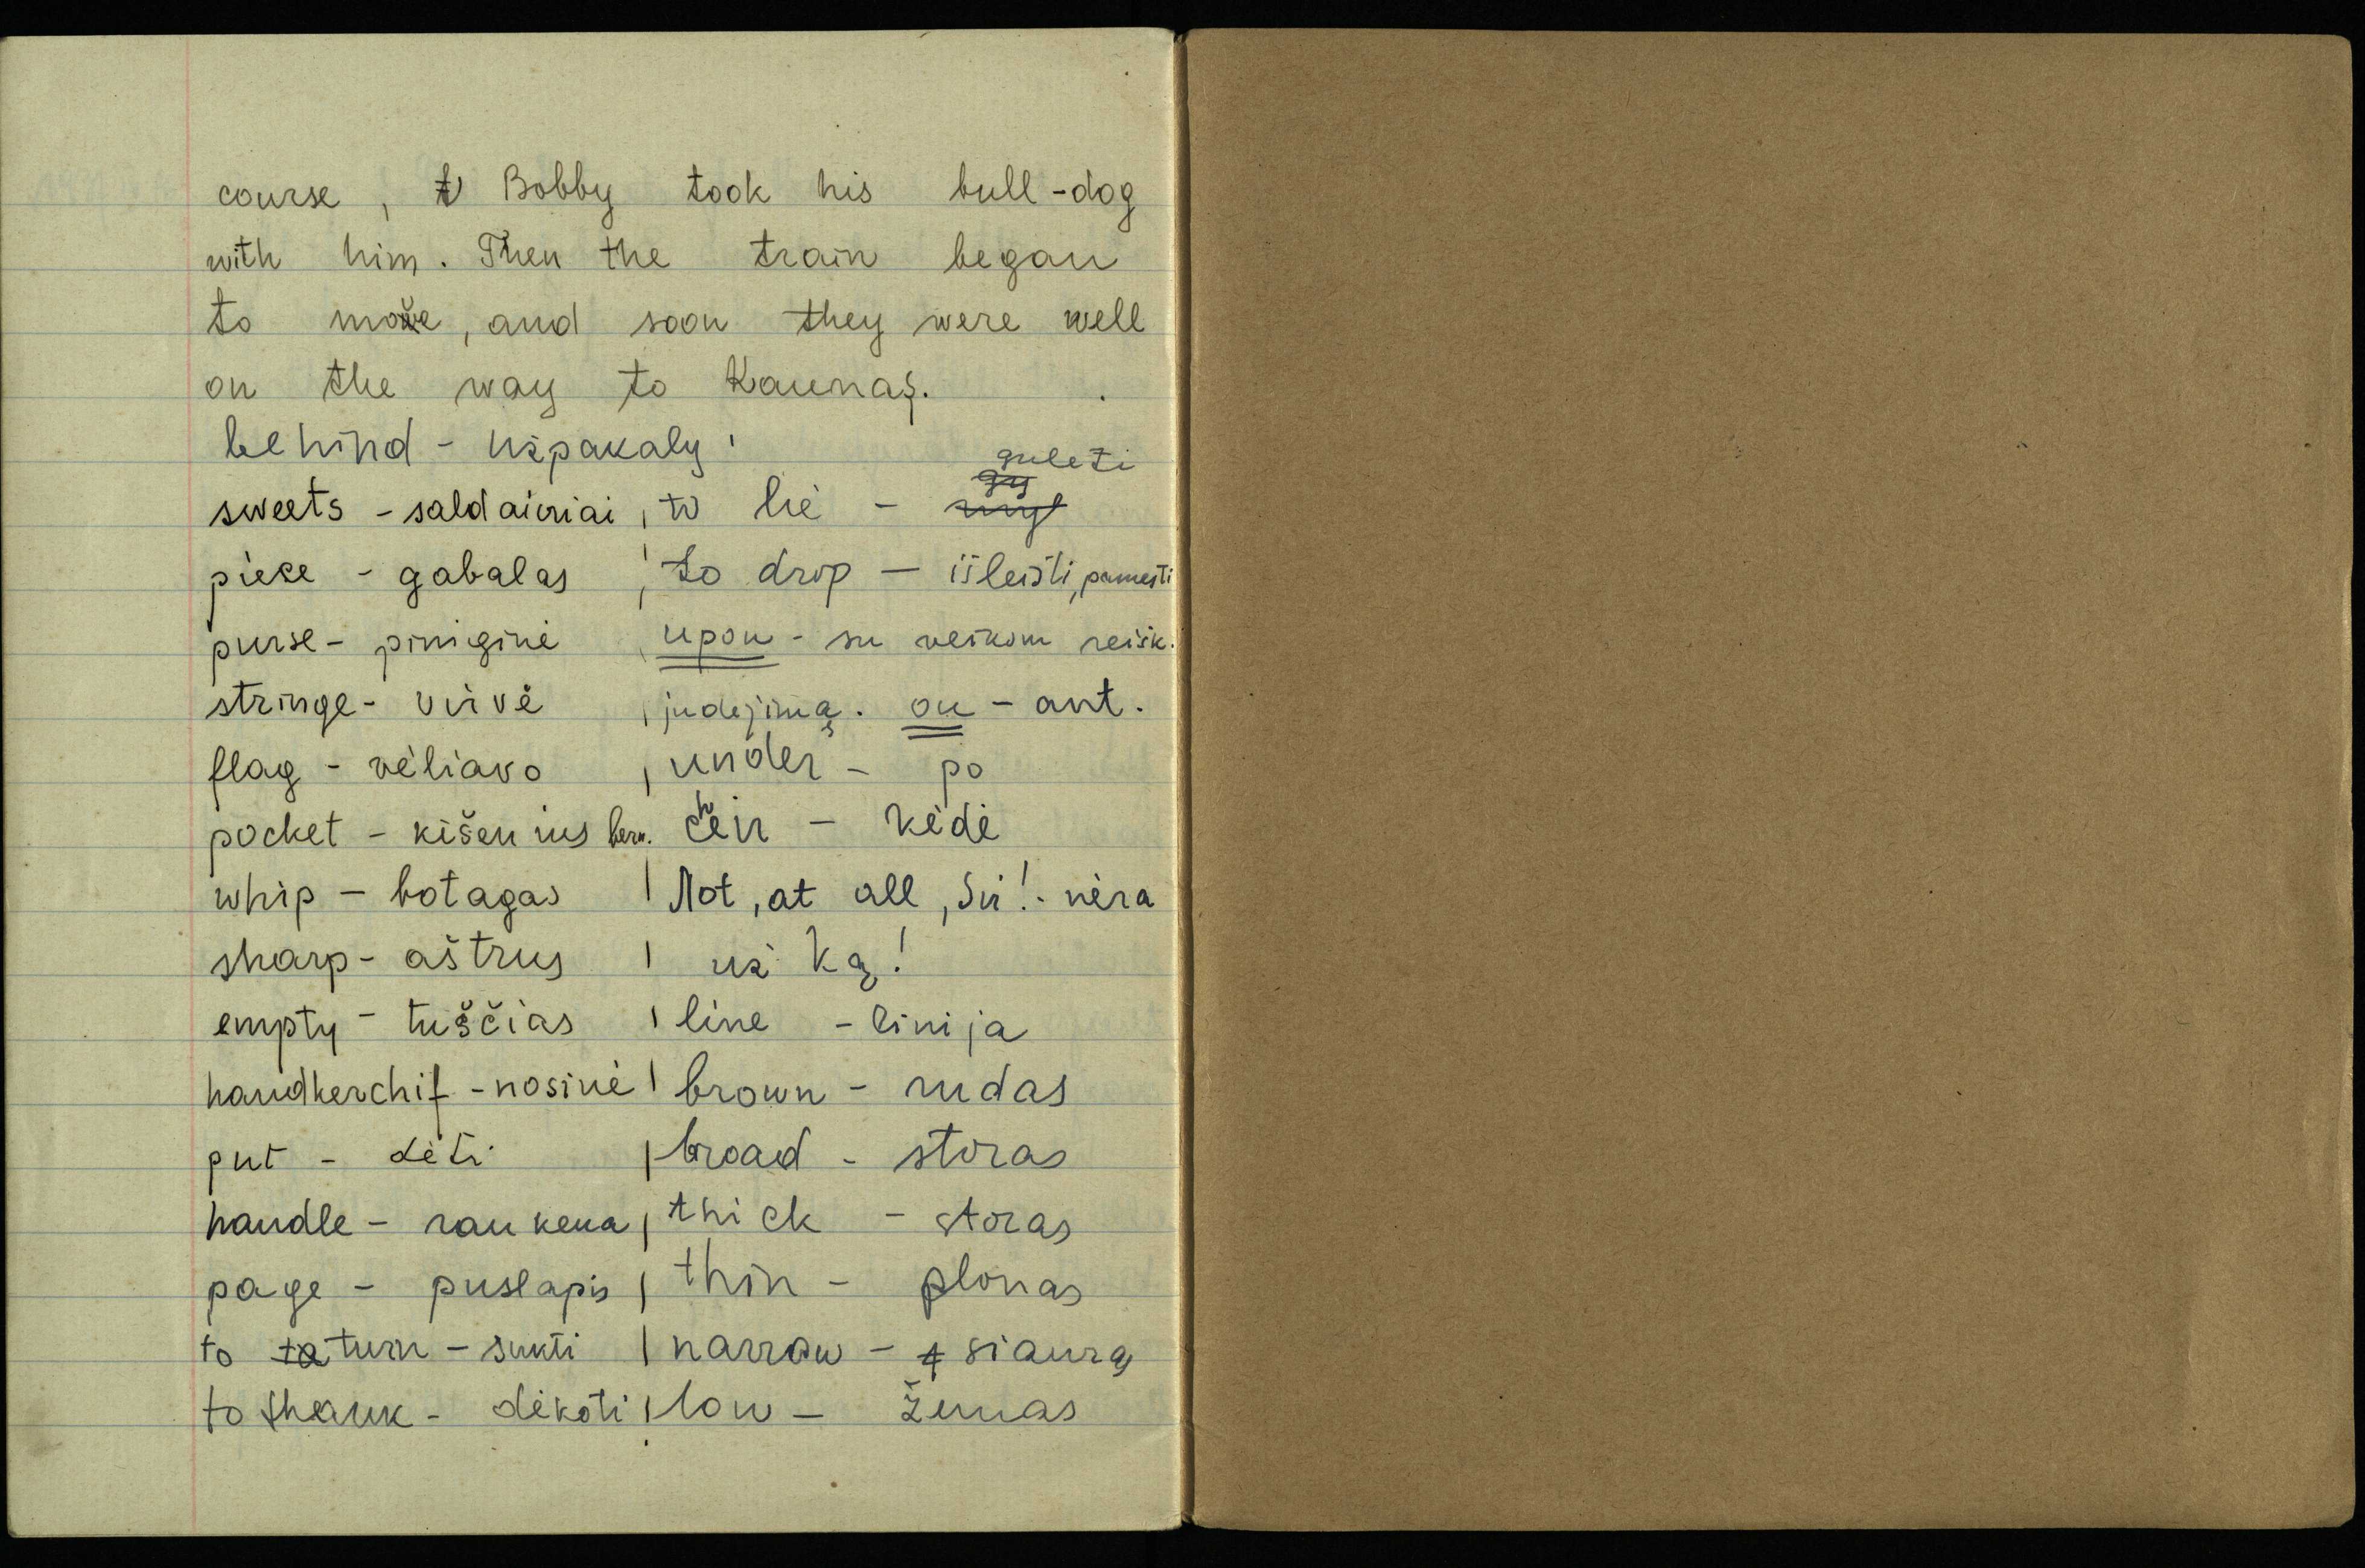 course, Bobby took his bull-dog
with him. Then the train began
to move, and soon they were well
on the way to Kaunas.
behind - užpakaly
sweets - saldainiai
piece - gabalas
purse - piniginė
stringe - virvė
flag - vėliava
pocket - kišenius bern.
whip - botagas
sharp - aštrus
empty - tuščias
handkerchif - nosinė
put - dėti
handle - rankena
page - puslapis
to turn - sukti
to thank - dėkoti
to lie - gulėti
to drop - išleisti, pamesti
upon - su veikom reišk.
judėjimą. on - ant.
under - po
cheir - kėdė
Not, at all, Sir! - nėra
už ką!
line - linija
brown - rudas
broad - storas
thick - storas
thin - plonas
narrow - siauras
low - žemas